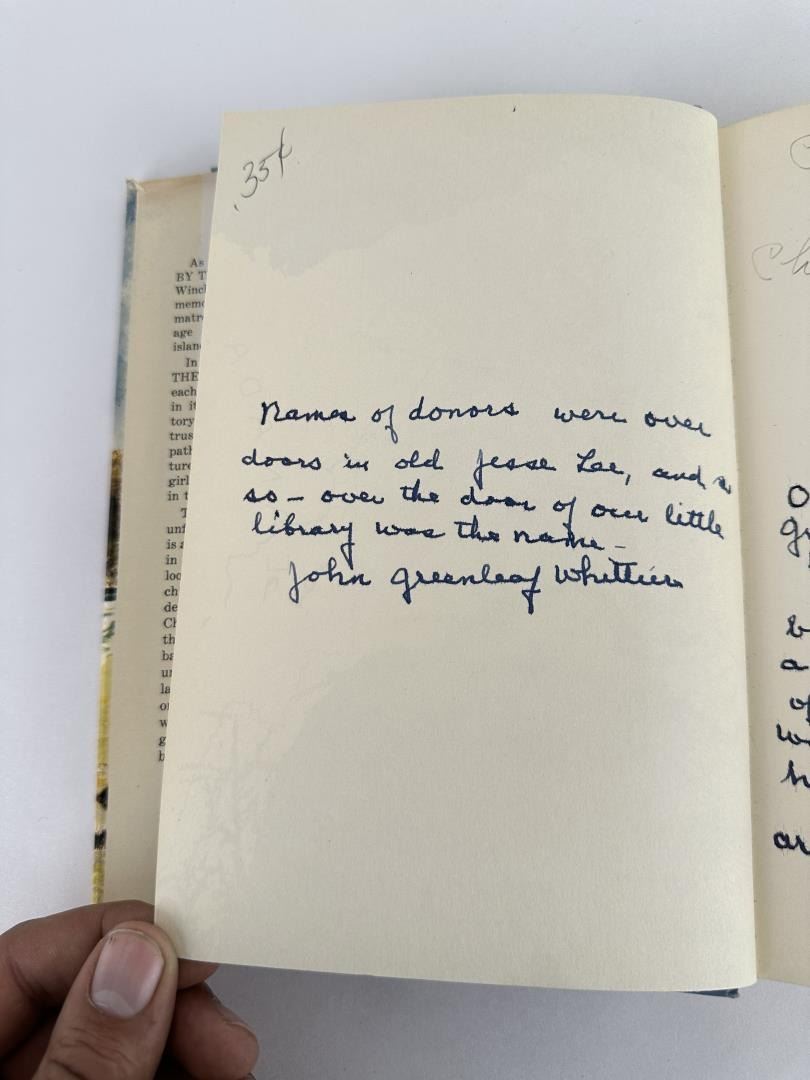 .35¢
Names of donors were over
doors in old Jesse Lee, and
so - over the door of our little
library was the name -
John Greenleaf Whittier
As
BY T
Winch
memo
matr
age
islan
In
THE
each
in it
tory
trus
path
ture
girl
in t
T
unf
is a
in
loo
ch
de
Ch
th
ba
un
la
o
w
g
b
Ch
O
gr
b
a
of
w
h
ar